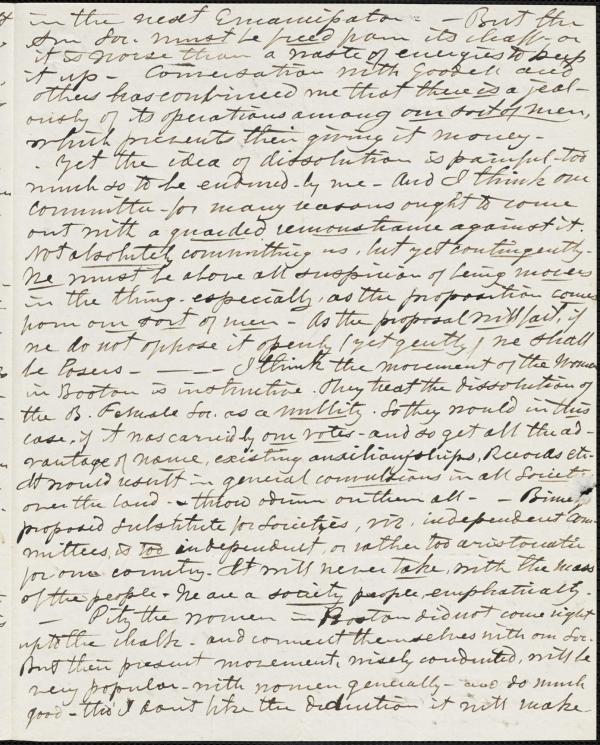 in the next Emancipator - - But the
Am Soc. must be freed from its chaff - or
it is worse than a waste of energies to keep
it up - Conversation with Goodell and
others has convinced me that there is a jeal-
ously of its operations among our sort of men,
which prevents their giving it money -
Yet the idea of dissolution is painful - too
much so to be endured by me - And I think our
committee - for many reasons ought to come
out with a guarded remonstrance against it.
Not absolutely committing us, but yet contingently -
We must be above all suspicion of being movers
in the thing - especially, as the proposition comes
from our sort of men - As the proposal will fail, if
we do not oppose it openly, (yet gently) we shall
be losers - - - - I think the movement of the Women
in Boston is instructive. They treat the dissolution of
the B. Female Soc. as a nullity. So they would in this
case, if it was carried by our votes - and so get all the ad-
vantage of name, existing auxiliaryships, Records etc.
It would result in general convulsions in all Societies
over the land - & throw odium on them all - - Birney's
proposed substitute for societies, viz. independent com-
mittees, is too independent, or rather too aristocratic
for our country - It will never take, with the mass
of the people - We are a society people, emphatically.
- Pity the women in Boston did not come right
up to the chalk - and connect themselves with our Soc.
But their present movement, wisely conducted, will be
very popular - with women generally - and do much
good - tho' I dont like the diminution it will make